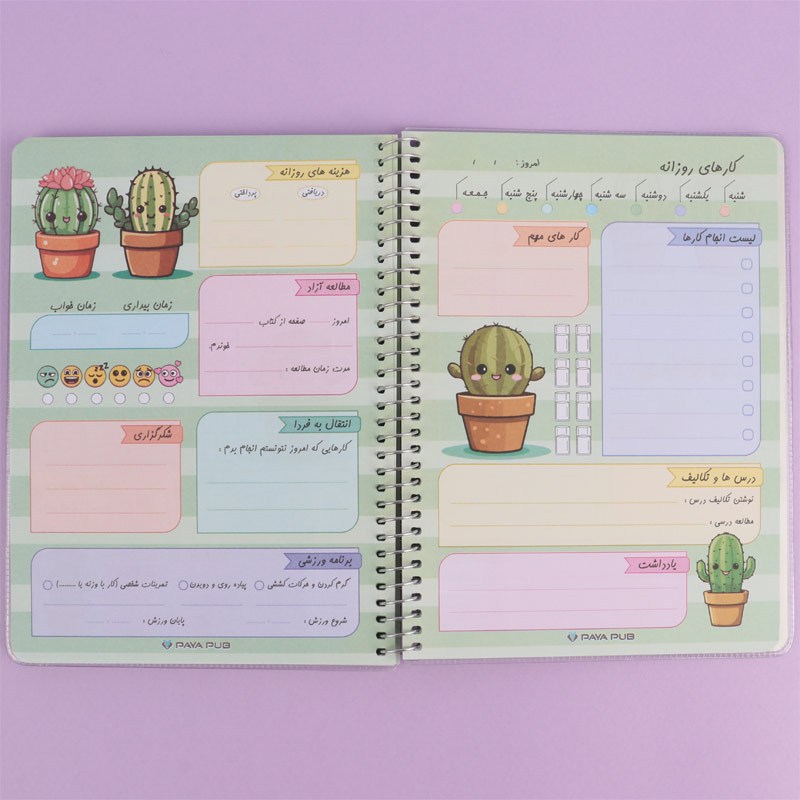 کارهای روزانه
امروز: / /
شنبه یکشنبه دوشنبه سه شنبه چهارشنبه پنج شنبه جمعه
لیست انجام کارها
کار های مهم
درس ها و تکالیف
نوشتن تکالیف درس:
مطالعه درسی:
یادداشت
PAYA PUB
هزینه های روزانه
دریافتی پرداختی
مطالعه آزاد
امروز ........ صفحه از کتاب ................
................ خوندم.
مدت زمان مطالعه:
زمان بیداری زمان خواب
zzz
انتقال به فردا
کارهایی که امروز نتونستم انجام بدم:
شکرگزاری
برنامه ورزشی
گرم کردن و حرکات کششی پیاده روی و دویدن تمرینات شاخص (کار با وزنه یا ........)
شروع ورزش: پایان ورزش:
PAYA PUB